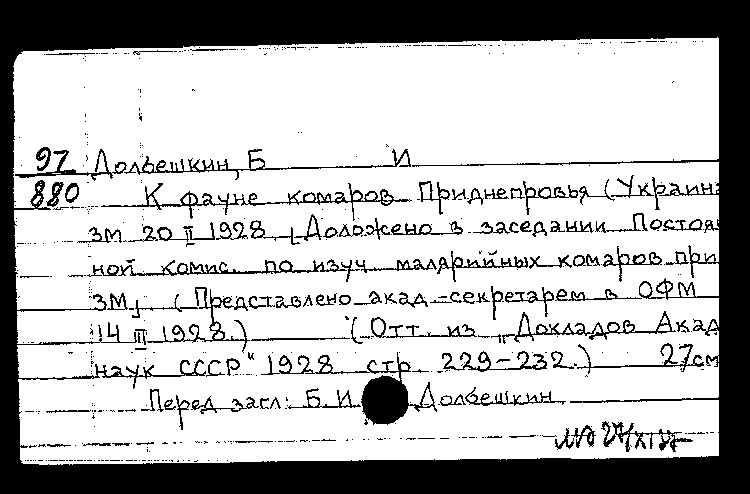 97 Долбешкин, Б И
880 К фауне комаров Приднепровья (Украина
зм 20 II 1928 [Доложено в заседании Постоян
ной комис. по изуч малярийных комаров при
ЗМ] (Представлено акад.-секретарем в ОФМ
14 III 1928.) (Отт. из „Докладов Акад
наук СССР" 1928 стр. 229-232.) 27см
Перед загл: Б. И Долбешкин.